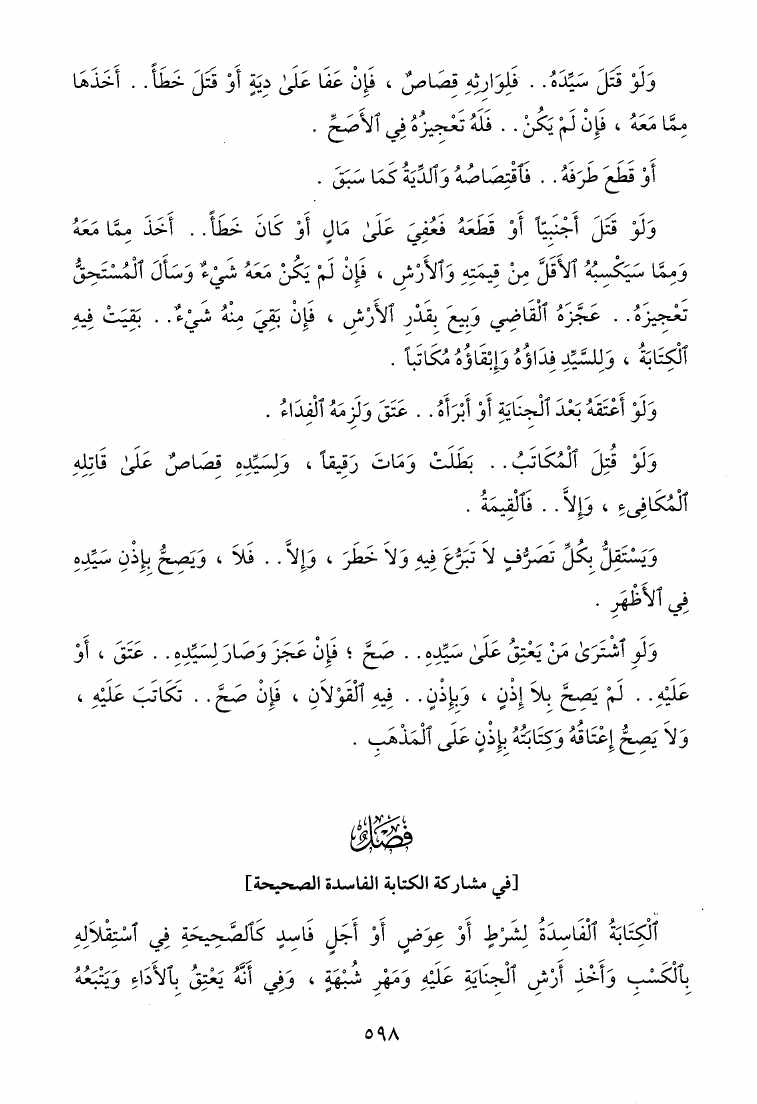 وَلَوْ قَتَلَ سَيِّدَهُ . . فَلِوَارِثِهِ قِصَاصٌ ، فَإِنْ عَفَا عَلَىٰ دِيَةٍ أَوْ قَتَلَ خَطَأً . . أَخَذَهَا
مِمَّا مَعَهُ ، فَإِنْ لَمْ يَكُنْ . . فَلَهُ تَعْجِيزُهُ فِي ٱلأَصَحِّ .
أَوْ قَطَعَ طَرَفَهُ . . فَٱقْتِصَاصُهُ وَٱلدِّيَةُ كَمَا سَبَقَ .
وَلَوْ قَتَلَ أَجْنَبِيّاً أَوْ قَطَعَهُ فَعُفِيَ عَلَىٰ مَالٍ أَوْ كَانَ خَطَأً . . أَخَذَ مِمَّا مَعَهُ
وَمِمَّا سَيَكْسِبُهُ ٱلأَقَلَّ مِنْ قِيمَتِهِ وَٱلأَرْشِ ، فَإِنْ لَمْ يَكُنْ مَعَهُ شَيْءٌ وَسَأَلَ ٱلْمُسْتَحِقُّ
تَعْجِيزَهُ . . عَجَّزَهُ ٱلْقَاضِي وَبِيعَ بِقَدْرِ ٱلأَرْشِ ، فَإِنْ بَقِيَ مِنْهُ شَيْءٌ . . بَقِيَتْ فِيهِ
ٱلْكِتَابَةُ ، وَلِلسَّيِّدِ فِدَاؤُهُ وَإِبْقَاؤُهُ مُكَاتَباً .
وَلَوْ أَعْتَقَهُ بَعْدَ ٱلْجِنَايَةِ أَوْ أَبْرَأَهُ . . عَتَقَ وَلَزِمَهُ ٱلْفِدَاءُ .
وَلَوْ قُتِلَ ٱلْمُكَاتَبُ . . بَطَلَتْ وَمَاتَ رَقِيقاً ، وَلِسَيِّدِهِ قِصَاصٌ عَلَىٰ قَاتِلِهِ
ٱلْمُكَافِىءِ ، وَإِلاَّ . . فَٱلْقِيمَةُ .
وَيَسْتَقِلُّ بِكُلِّ تَصَرُّفٍ لاَ تَبَرُّعَ فِيهِ وَلاَ خَطَرَ ، وَإِلاَّ . . فَلاَ ، وَيَصِحُّ بِإِذْنِ سَيِّدِهِ
فِي ٱلأَظْهَرِ .
وَلَوِ ٱشْتَرَىٰ مَنْ يَعْتِقُ عَلَىٰ سَيِّدِهِ . . صَحَّ ؛ فَإِنْ عَجَزَ وَصَارَ لِسَيِّدِهِ . . عَتَقَ ، أَوْ
عَلَيْهِ . . لَمْ يَصِحَّ بِلاَ إِذْنٍ ، وَبِإِذْنٍ . . فِيهِ ٱلْقَوْلاَنِ ، فَإِنْ صَحَّ . . تَكَاتَبَ عَلَيْهِ ،
وَلاَ يَصِحُّ إِعْتَاقُهُ وَكِتَابَتُهُ بِإِذْنٍ عَلَى ٱلْمَذْهَبِ .
فَصْلٌ
[في مشاركة الكتابة الفاسدة الصحيحة]
ٱلْكِتَابَةُ ٱلْفَاسِدَةُ لِشَرْطٍ أَوْ عِوَضٍ أَوْ أَجَلٍ فَاسِدٍ كَٱلصَّحِيحَةِ فِي ٱسْتِقْلاَلِهِ
بِٱلْكَسْبِ وَأَخْذِ أَرْشِ ٱلْجِنَايَةِ عَلَيْهِ وَمَهْرِ شُبْهَةٍ ، وَفِي أَنَّهُ يَعْتِقُ بِٱلأَدَاءِ وَيَتْبَعُهُ
٥٩٨